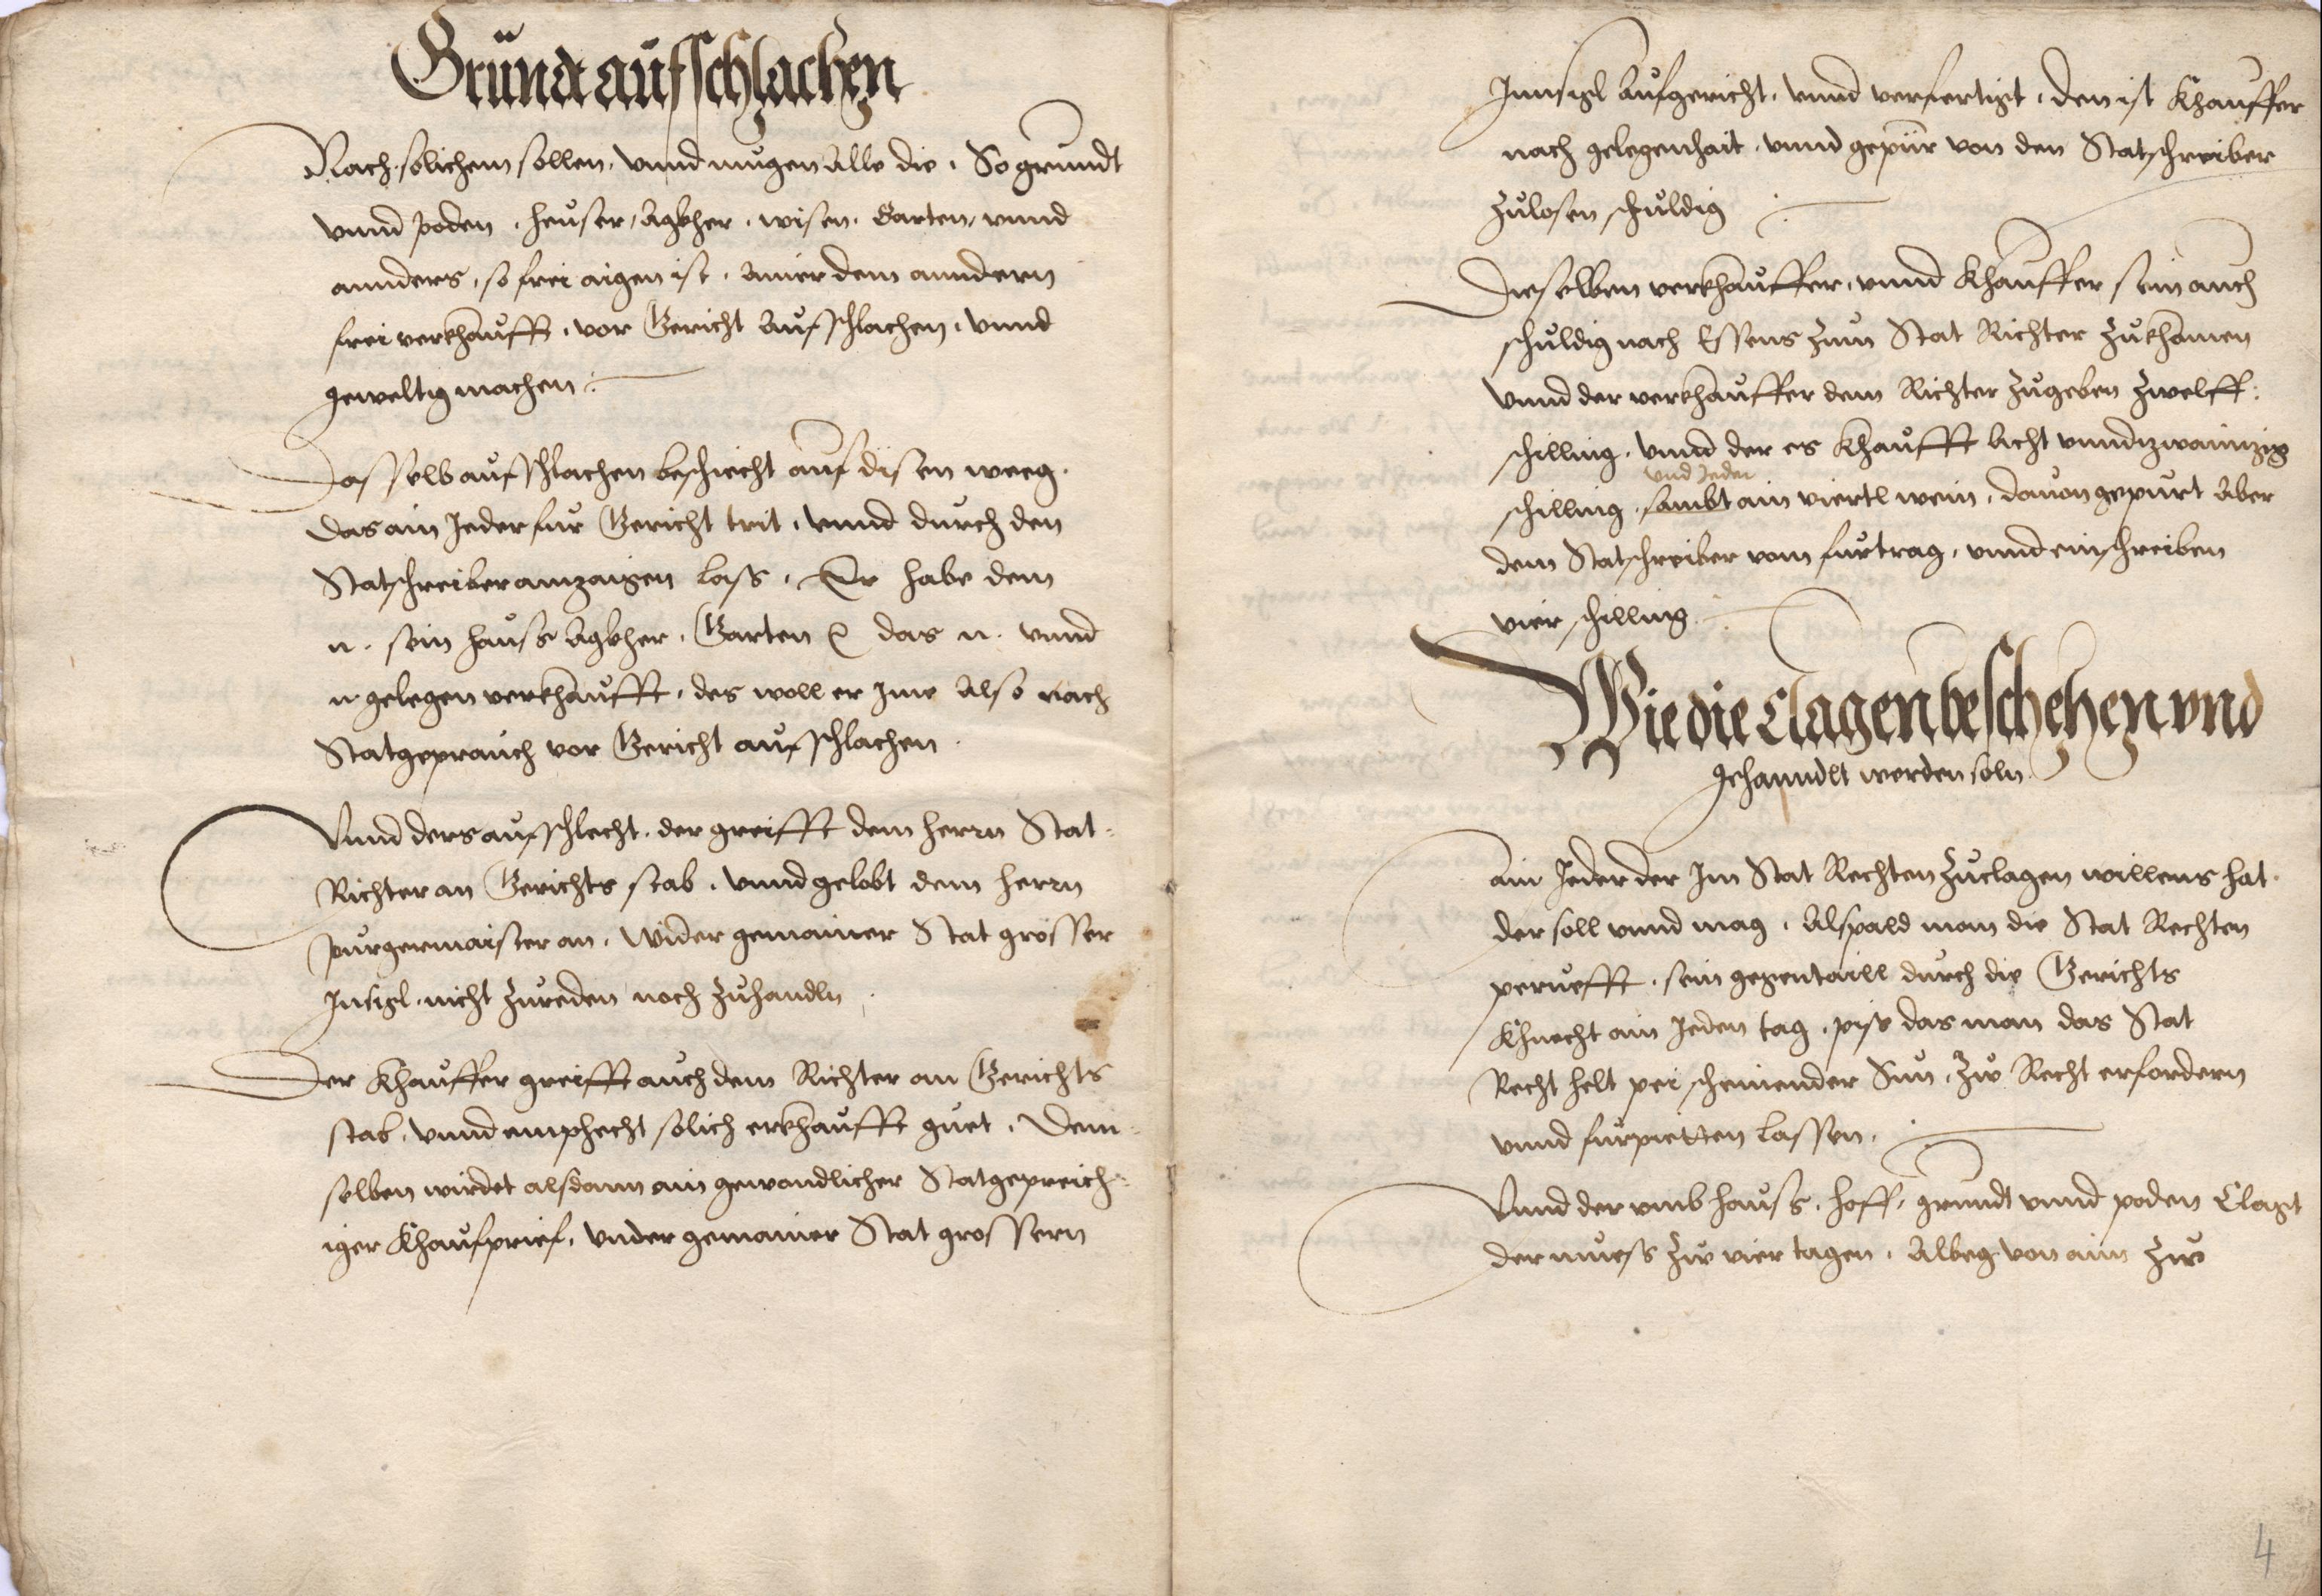 Grundt aufschlachen
Nach solichem sollen, vnnd mugen Alle die, So grundt
vnnd poden, heuser, Agkher, wisen, Garten, vnnd
annders, so frei aigen ist, Ainer dem anndern
frei verkhaufft, vor Gericht Aufschlachen, vnnd
geweltig machen :
Dasselb aufschlachen beschiecht auf disen weeg.
Das ain Jeder fur Gericht trit, vnnd durch den
Statschreiber anzaigen lass, Er habe dem
n. sein hauss Agkher, Garten &c das n. vnnd
n. gelegen verkhaufft, des woll er Ime Also nach
Statgeprauch vor Gericht aufschlachen.
Vnnd ders aufschlecht, der greifft dem herrn Stat-
Richter an Gerichts stab, vnnd gelobt dem herrn
purgermaister an, wider gemainer Stat grosser
Insigl, nicht zureden noch zuhandln.
Der Khauffer greifft auch dem Richter an Gerichts
stab, vnnd emphecht solich erkhaufft guet, Dem-
selben wirdet alsdann ain gewondlicher Statgepreich-
iger Khaufprief, vnder gemainer Stat grossern
Innsigl Aufgericht, vnnd verfertigt, den ist Khauffer
nach gelegenhait, vnnd gepür von den Statschreiber
zulosen schuldig :
Dieselben verkhauffer, vnnd Khauffer sein auch
schuldig nach Essens zum Stat Richter zukhomen
vnnd der verkhauffer dem Richter zugeben zwelff:
schilling, vnnd der es Khaufft Acht vnndzwainzig
vnd Jeder
schilling, sambt ain viertl wein, dauon gepurt Aber
dem Statschreiber vom furtrag, vnnd einschreiben
vier schilling.
Wie die Clagen beschehen vnd
gehanndlt werden soln.
Ain Jeder der Im Stat Rechten zuclagen willens hat.
der soll vnnd mag, Alspald man die Stat Rechten
peruefft, sein gegentaill durch die Gerichts
Khnecht ain Jeden tag, piss das man das Stat
Recht helt pei scheinender Sun, zw Recht erfordern
vnnd furpietten lassen.
Vnnd der vmb hauss, hoff, grundt vnnd poden Clagt
der muess zw vier tagen, Albeg von ain zw
4